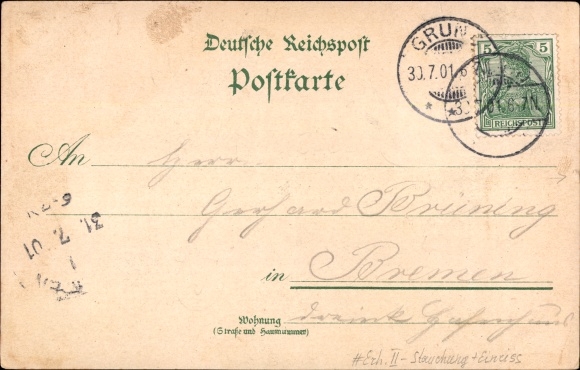 Deutsche Reichspost
Postkarte
GRUND
30.7.01.
5 5
REICHSPOST
An Herrn
Gerhard Brüning
in Bremen
Wohnung
(Straße und Hausnummer)
31.
7. 01
6-7N
# Ech. II - Stauchung + Einriss